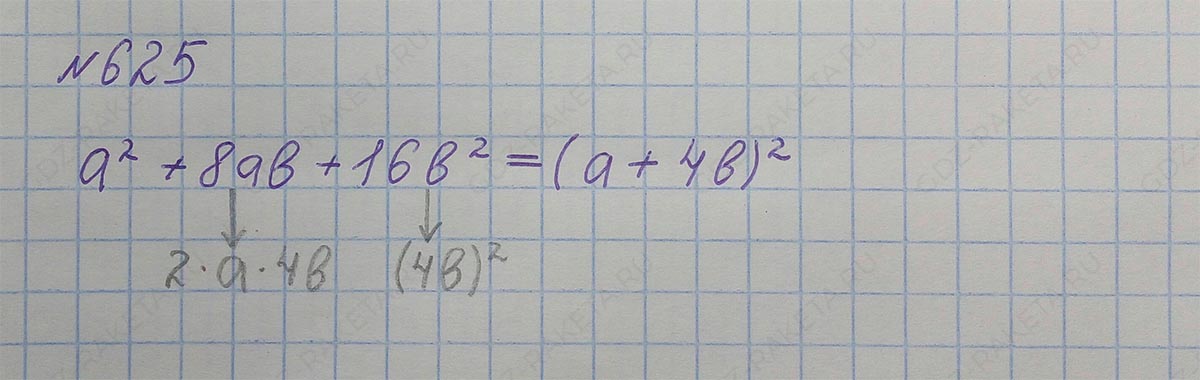 №625
a² + 8ab + 16b² = (a + 4b)²
2·a·4b (4b)²
GDZ-RAKETA.RU